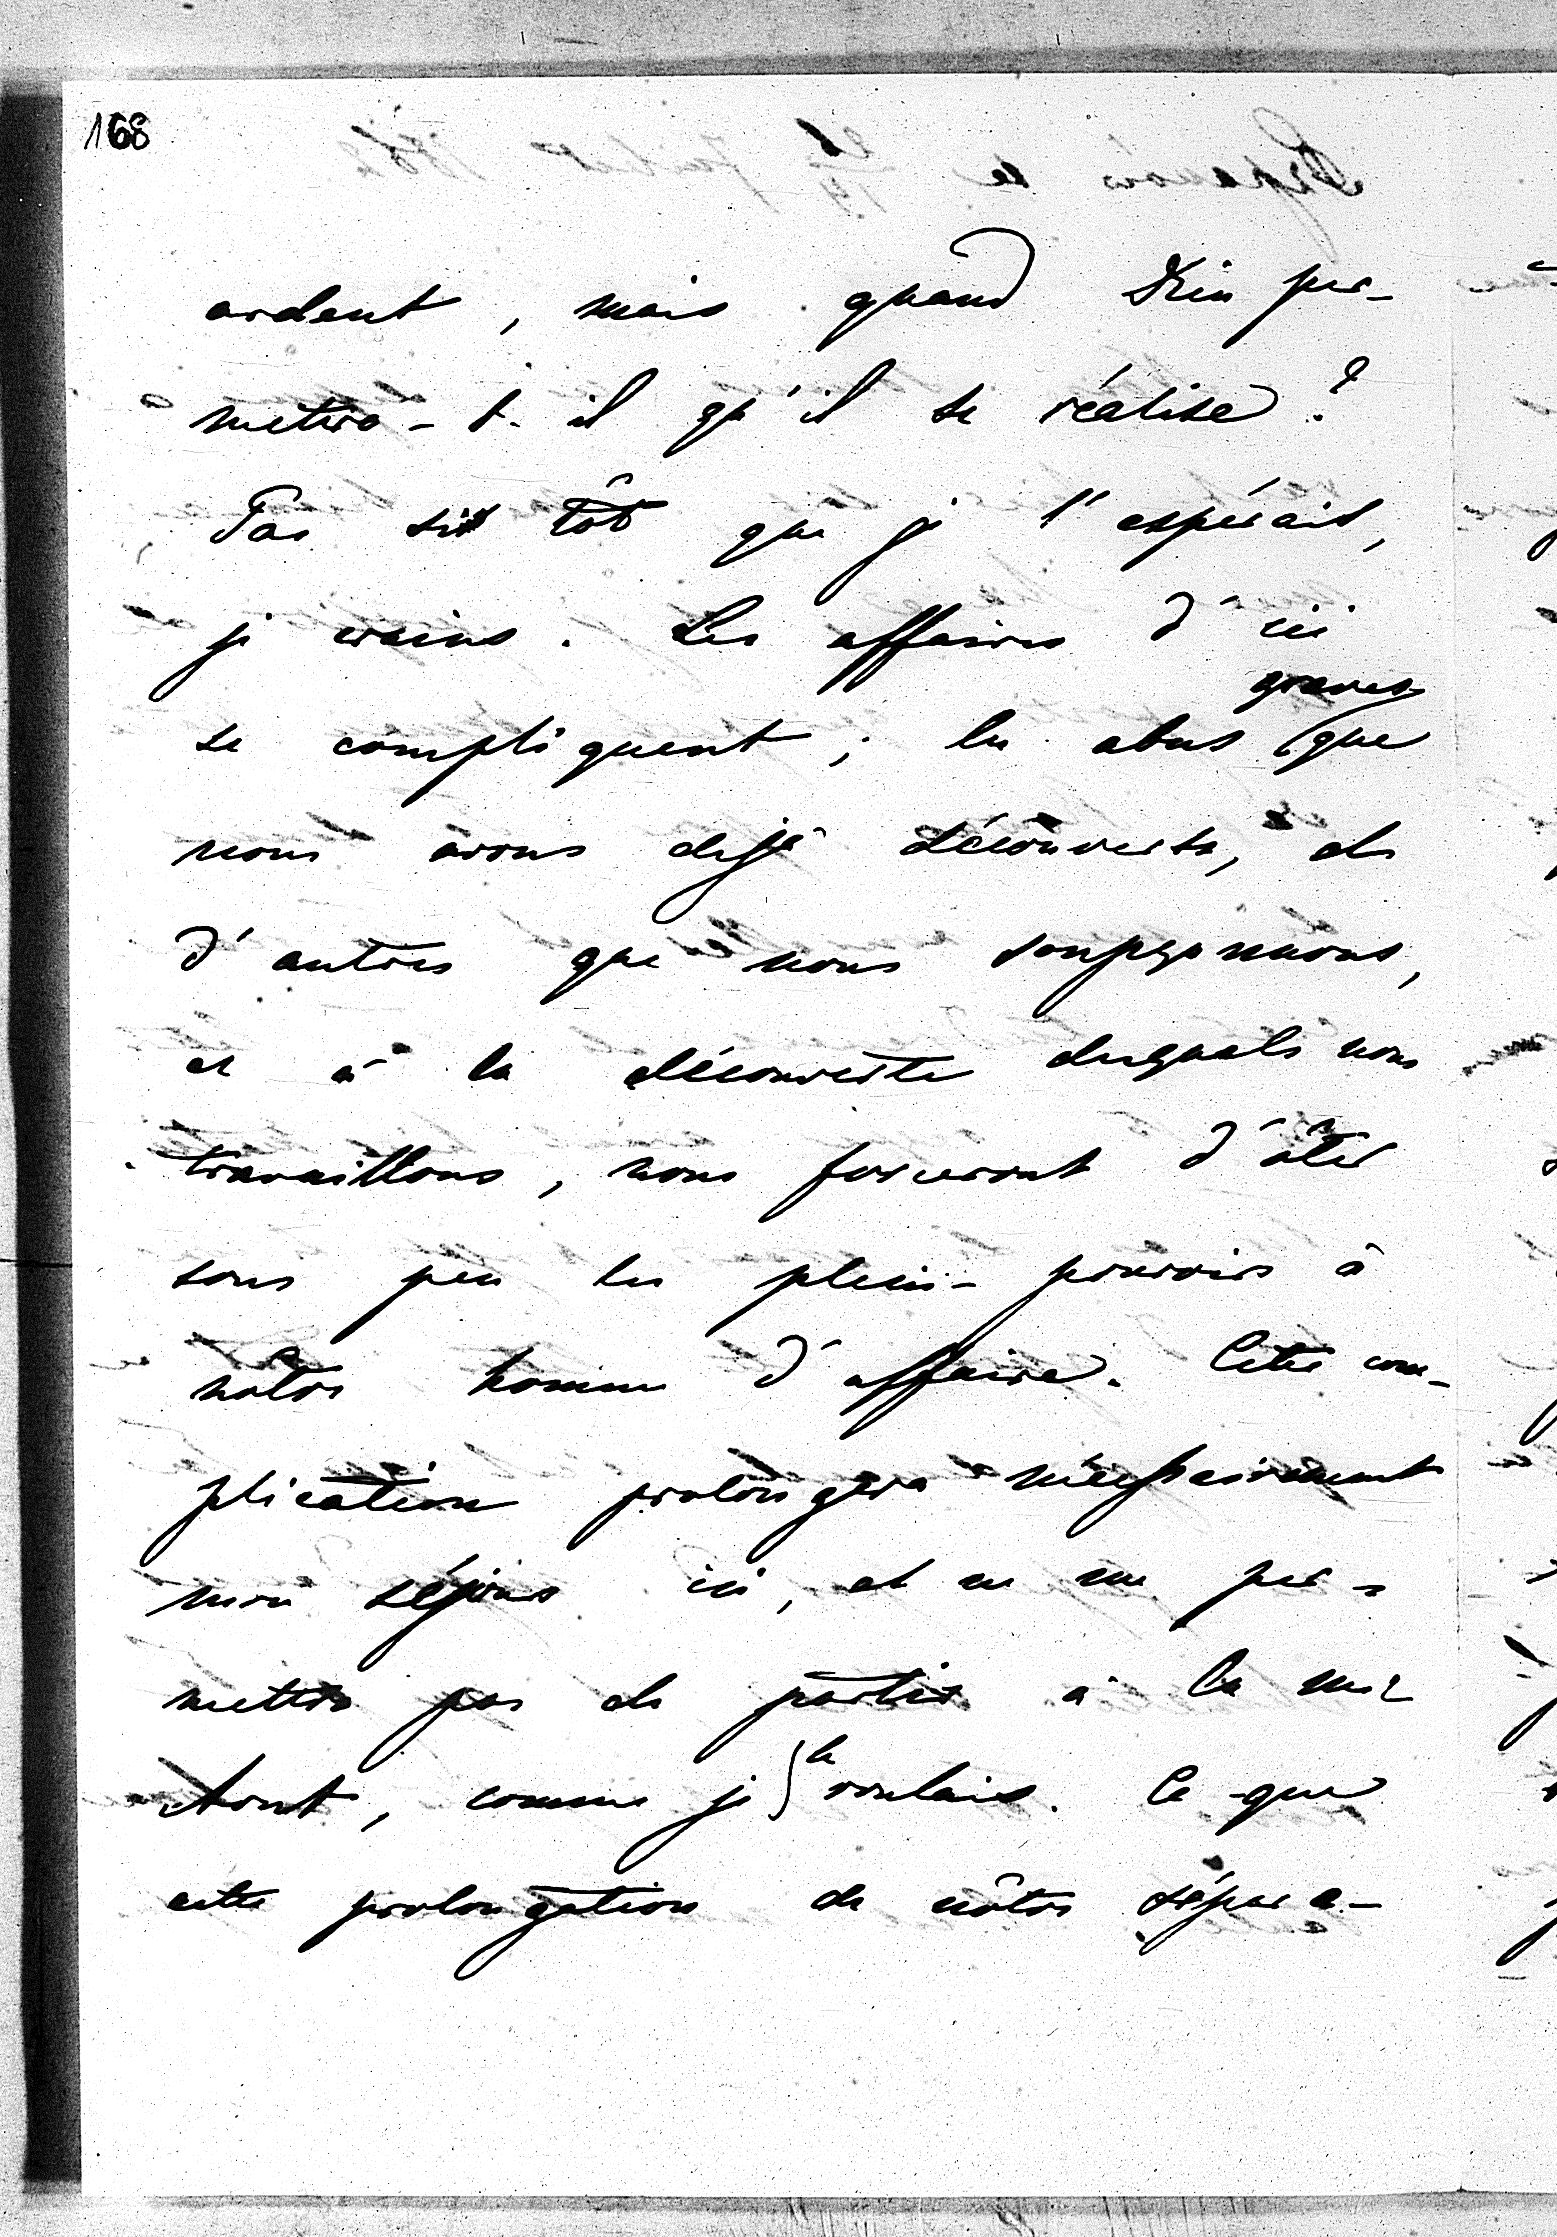 168
ardent, mais quand Dieu per-
mettra-t-il qu'il se réalise?
Pas sit tôt que je l'espérais,
je crains. Les affaires d'ici
se compliquent; les abus graves que
nous avons déjà découverts, de
d'autres que nous soupçonnons,
et à la découverte desquels nous
travaillons, nous forceront d'ôter
sous peu les plein-pouvoirs à
nôtre homme d'affaire. Cette com-
plication prolongera nécessairement
mon séjour ici, et ne me per-
mettra pas de partir à la mi
Août, comme je le voulais. Ce que
cette prolongation de nôtre sépara-